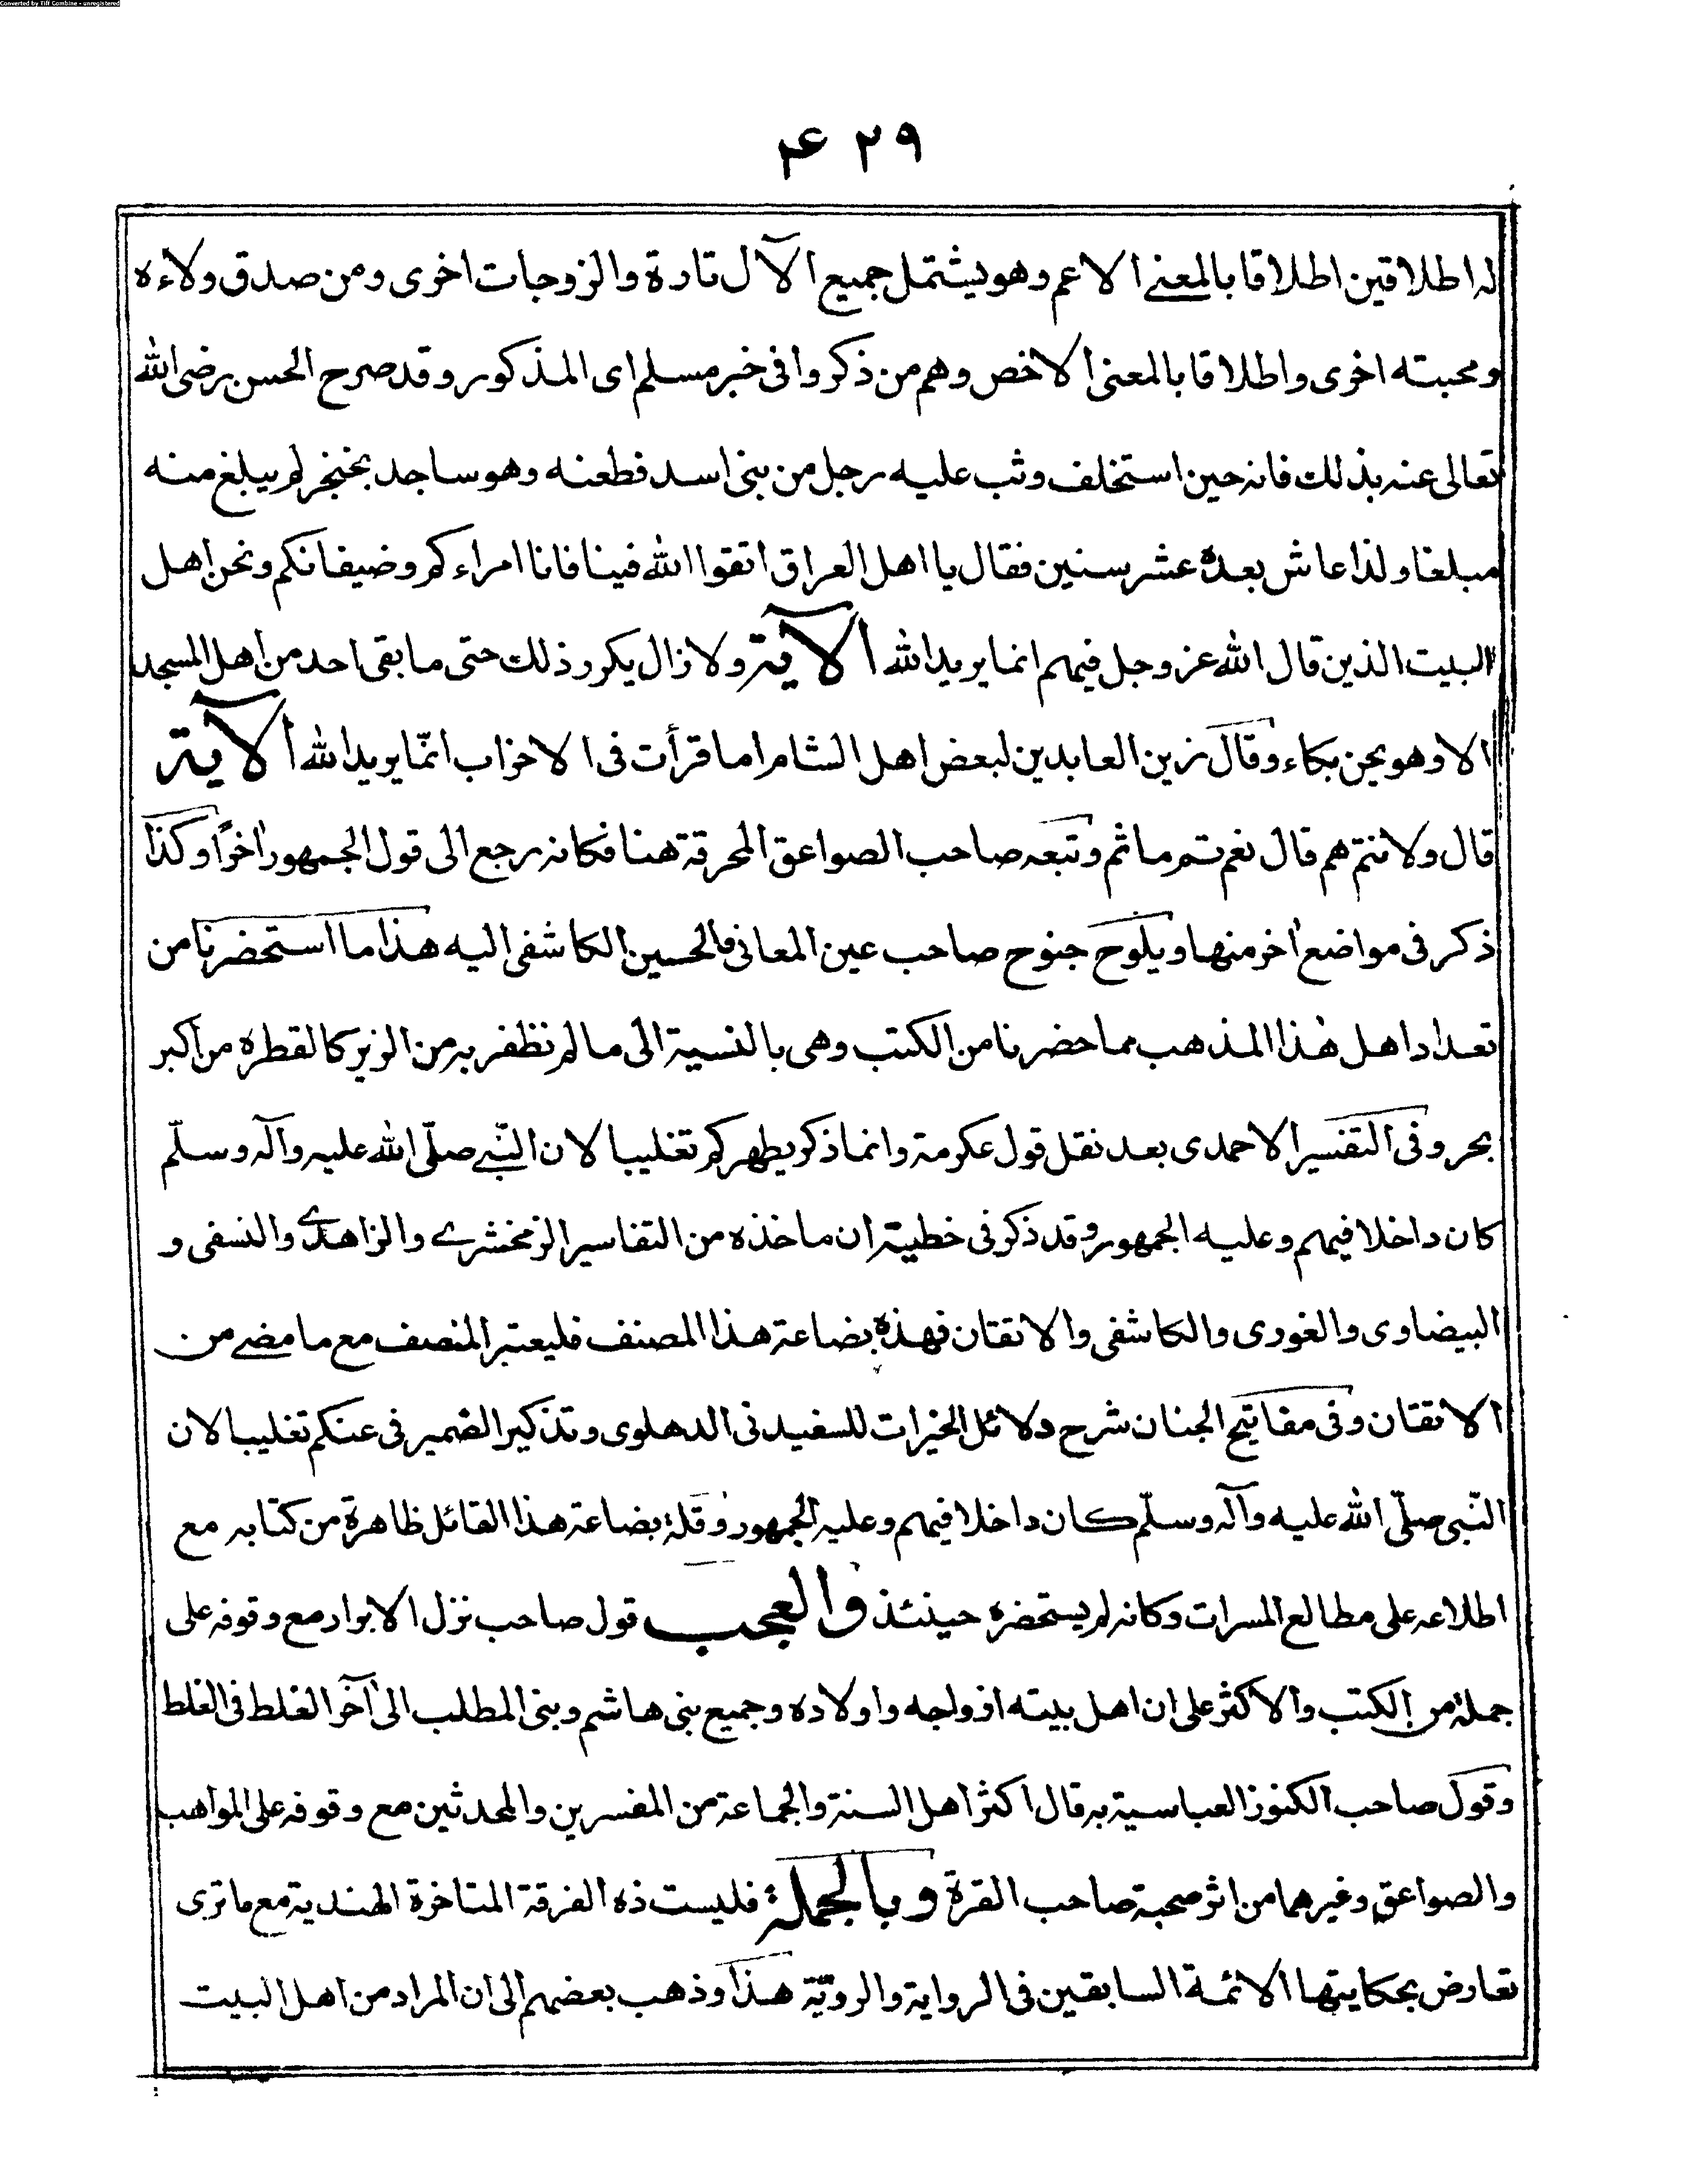 Converted by Tiff Combine - unregistered
۴۲۹
له اطلاقين اطلاقا بالمعنى الاعم وهو يشتمل جميع الآل تارة والزوجات اخرى ومن صدق ولاءه
ومحبته اخرى واطلاقا بالمعنى الاخص وهم من ذكروا فى خبر مسلم اى المذكور وقد صرح الحسن رضى الله
تعالى عنه بذلك فانه حين استخلف وثب عليه رجل من بنى اسد فطعنه وهو ساجد بخنجر لم يبلغ منه
مبلغا ولذا عاش بعده عشر سنين فقال يا اهل العراق اتقوا الله فينا فانا امراءكم وضيفانكم ونحن اهل
البيت الذين قال الله عز وجل فيهم انما يريد الله الآية ولا زال يكرر ذلك حتى ما بقى احد من اهل المسجد
الا وهو يحن بكاء وقال زين العابدين لبعض اهل الشام اما قرأت فى الاحزاب انّما يريد الله الآية
قال ولانتم هم قال نعم تم ما ثم وتبعه صاحب الصواعق المحرقة هنا فكانه رجع الى قول الجمهور اٰخرًا وكذا
ذكر فى مواضع اٰخر منها ويلوح جنوح صاحب عين المعانى والحسين الكاشفى اليه هذا ما استحضرنا من
تعداد اهل هٰذا المذهب مما حضرنا من الكتب وهى بالنسبة الى ما لم نظفر به من الزبر كالقطرة من اكبر
بحر وفى التفسير الاحمدى بعد نقل قول عكرمة وانما ذكر يطهركم تغليبا لان النّبى صلّى الله عليه وآله وسلّم
كان داخلا فيهم وعليه الجمهور وقد ذكر فى خطبته ان ماخذه من التفاسير الزمخشرى والزاهدى والنسفى و
البيضاوى والغورى والكاشفى والاتقان فهذه بضاعة هذا المصنف فليعتبر المنصف مع ما مضى من
الاتقان وفى مفاتيح الجنان شرح دلائل الخيرات للسفيدنى الدهلوى وتذكير الضمير فى عنكم تغليبا لان
النّبى صلّى الله عليه وآله وسلّم كان داخلا فيهم وعليه الجمهور وقلة بضاعة هذا القائل ظاهرة من كتابه مع
اطلاعه على مطالع المسرات وكانه لم يستحضره حينئذ والعجب قول صاحب نزل الابرار مع وقوفه على
جملة من الكتب والاكثر على ان اهل بيته ازواجه واولاده وجميع بنى هاشم وبنى المطلب الى آخر الغلط فى الغلط
وقول صاحب الكنوز العباسية به قال اكثر اهل السنة والجماعة من المفسرين والمحدثين مع وقوفه على المواهب
والصواعق وغيرهما من اثر صحبة صاحب القرة وبالجملة فليست ذه الفرقة المتاخرة الهندية مع ما ترى
تعارض بحكايتها الائمة السابقين فى الرواية والرويّة هذا وذهب بعضهم الى ان المراد من اهل البيت